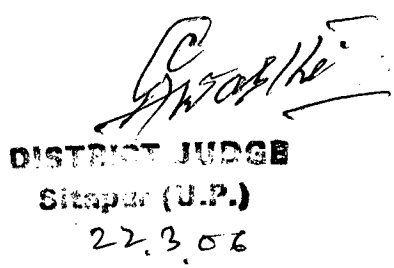 DISTRICT JUDGE
Sitapur (U.P.)
22.3.06